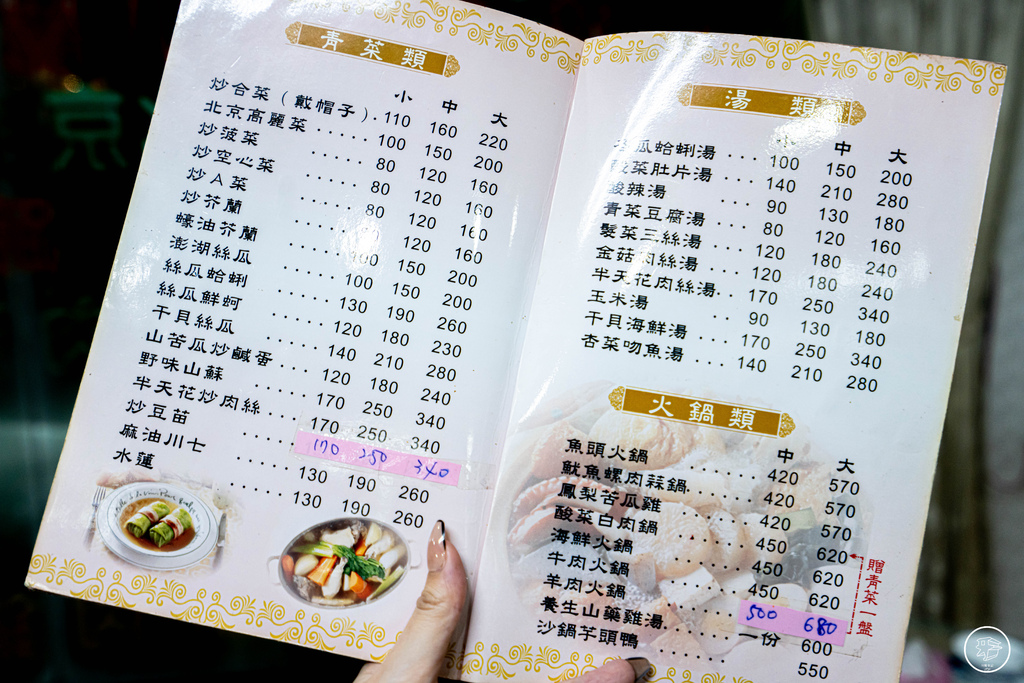 青菜類
小 中 大
炒合菜（戴帽子）. 110 160 220
北京高麗菜 ...... 100 150 200
炒菠菜 80 120 160
炒空心菜 80 120 160
炒A菜 80 120 160
炒芥蘭 120 160
蠔油芥蘭 100 150 200
澎湖絲瓜 100 150 200
絲瓜蛤蜊 130 190 260
絲瓜鮮蚵 120 180 230
干貝絲瓜 140 210 280
山苦瓜炒鹹蛋 120 180 240
野味山蘇 170 250 340
半天花炒肉絲 170 250 340
炒豆苗 170 250 340
麻油川七 130 190 260
水蓮 130 190 260
湯類
小 中 大
瓜蛤蜊湯 ... 100 150 200
酸菜肚片湯 ... 140 210 280
酸辣湯 90 130 180
青菜豆腐湯 80 120 160
髮菜三絲湯 120 180 240
金菇肉絲湯 120 180 240
半天花肉絲湯 170 250 340
玉米湯 90 130 180
干貝海鮮湯 170 250 340
杏菜吻魚湯 140 210 280
火鍋類
中 大
魚頭火鍋 420 570
魷魚螺肉蒜鍋 420 570
鳳梨苦瓜雞 420 570
酸菜白肉鍋 450 620
海鮮火鍋 450 620
牛肉火鍋 450 620
羊肉火鍋 500 680
養生山藥雞湯 一份 600
沙鍋芋頭鴨 550
贈青菜一盤